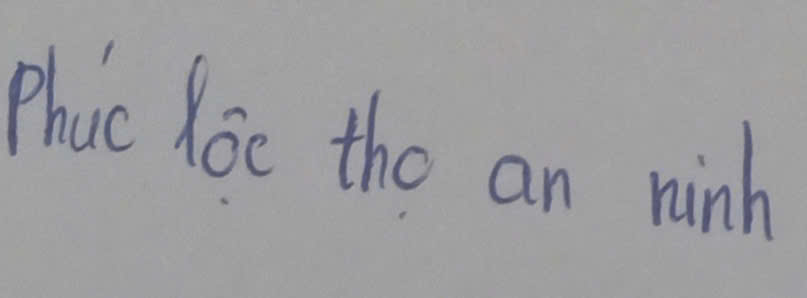 Phúc lộc thọ an ninh